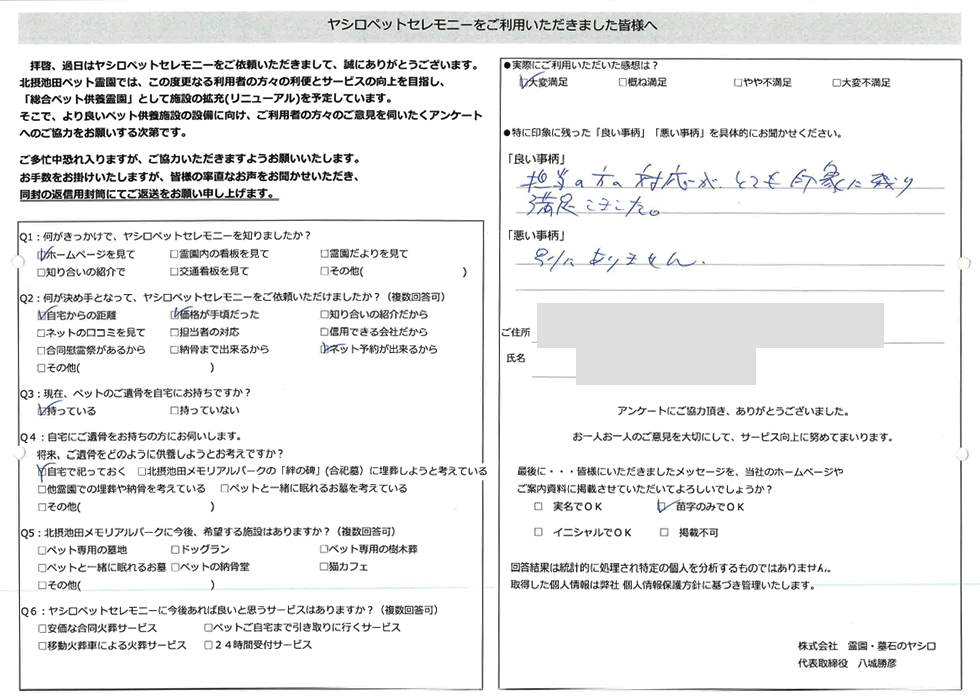 ヤシロペットセレモニーをご利用いただきました皆様へ
拝啓、過日はヤシロペットセレモニーをご依頼いただきまして、誠にありがとうございます。
北摂池田ペット霊園では、この度更なる利用者の方々の利便とサービスの向上を目指し、
「総合ペット供養霊園」として施設の拡充(リニューアル)を予定しています。
そこで、より良いペット供養施設の設備に向け、ご利用者の方々のご意見を伺いたくアンケート
へのご協力をお願いする次第です。
ご多忙中恐れ入りますが、ご協力いただきますようお願いいたします。
お手数をお掛けいたしますが、皆様の率直なお声をお聞かせいただき、
同封の返信用封筒にてご返送をお願い申し上げます。
Q1：何がきっかけで、ヤシロペットセレモニーを知りましたか？
☑ホームページを見て □霊園内の看板を見て □霊園だよりを見て
□知り合いの紹介で □交通看板を見て □その他( )
Q2：何が決め手となって、ヤシロペットセレモニーをご依頼いただけましたか？（複数回答可）
☑自宅からの距離 ☑価格が手頃だった □知り合いの紹介だから
□ネットの口コミを見て □担当者の対応 □信用できる会社だから
□合同慰霊祭があるから □納骨まで出来るから ☑ネット予約が出来るから
□その他( )
Q3：現在、ペットのご遺骨を自宅にお持ちですか？
☑持っている □持っていない
Q４：自宅にご遺骨をお持ちの方にお伺いします。
将来、ご遺骨をどのように供養しようとお考えですか？
☑自宅で祀っておく □北摂池田メモリアルパークの「絆の碑」(合祀墓）に埋葬しようと考えている
□他霊園での埋葬や納骨を考えている □ペットと一緒に眠れるお墓を考えている
□その他( )
Q5：北摂池田メモリアルパークに今後、希望する施設はありますか？（複数回答可）
□ペット専用の墓地 □ドッグラン □ペット専用の樹木葬
□ペットと一緒に眠れるお墓 □ペットの納骨堂 □猫カフェ
□その他( )
Q６：ヤシロペットセレモニーに今後あれば良いと思うサービスはありますか？（複数回答可）
□安価な合同火葬サービス □ペットご自宅まで引き取りに行くサービス
□移動火葬車による火葬サービス □２４時間受付サービス
●実際にご利用いただいた感想は？
☑大変満足 □概ね満足 □やや不満足 □大変不満足
●特に印象に残った「良い事柄」「悪い事柄」を具体的にお聞かせください。
「良い事柄」
担当の方の対応が、とても印象に残り
満足できました。
「悪い事柄」
別にありません.
ご住所
氏名
アンケートにご協力頂き、ありがとうございました。
お一人お一人のご意見を大切にして、サービス向上に努めてまいります。
最後に・・・皆様にいただきましたメッセージを、当社のホームページや
ご案内資料に掲載させていただいてよろしいでしょうか？
□ 実名でＯＫ ☑ 苗字のみでＯＫ
□ イニシャルでＯＫ □ 掲載不可
回答結果は統計的に処理され特定の個人を分析するものではありません。
取得した個人情報は弊社 個人情報保護方針に基づき管理いたします。
株式会社 霊園・墓石のヤシロ
代表取締役 八城勝彦